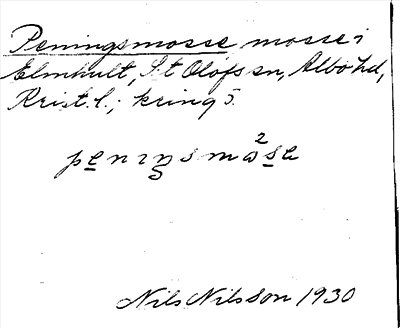 Peningsmosse mosse i
Elmhult, S:t Olofs sn, Albo hd,
Krist. l.; kring 5.
pe̲nɪŋsmɷ²s̲e
Nils Nilsson 1930